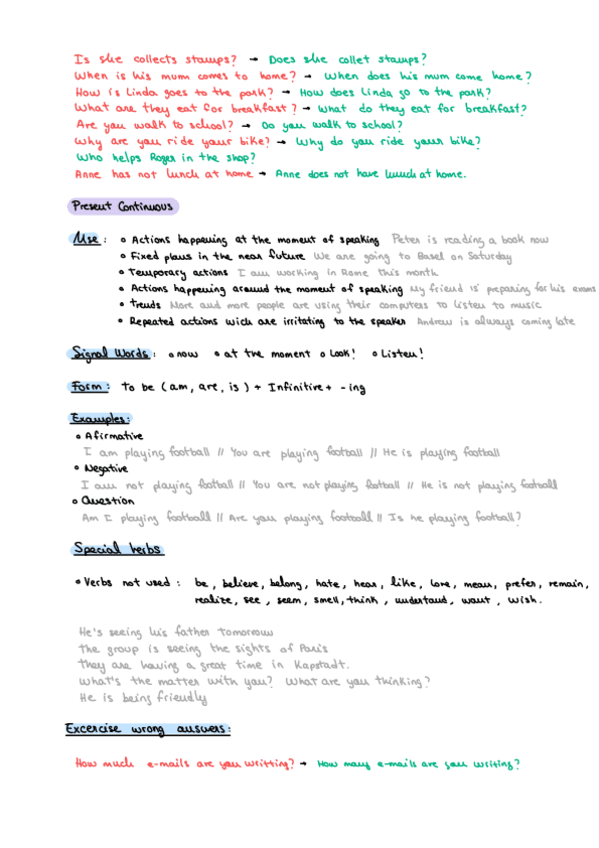 Is she collects stamps? → Does she collet stamps?
When is his mum comes to home? → When does his mum come home?
How is Linda goes to the park? → How does Linda go to the park?
What are they eat for breakfast? → What do they eat for breakfast?
Are you walk to school? → Do you walk to school?
Why are you ride your bike? → Why do you ride your bike?
Who helps Roger in the shop?
Anne has not lunch at home → Anne does not have lunch at home.
Present Continuous
Use: • Actions happening at the moment of speaking Peter is reading a book now
• Fixed plans in the near future We are going to Basel on Saturday
• Temporary actions I am working in Rome this month
• Actions happening around the moment of speaking My friend is preparing for his exams
• Trends More and more people are using their computers to listen to music
• Repeated actions wich are irritating to the speaker Andrew is always coming late
Signal Words: • now • at the moment • Look! • Listen!
Form: To be (am, are, is) + Infinitive + -ing
Examples:
• Afirmative
I am playing football // You are playing football // He is playing football
• Negative
I am not playing football // You are not playing football // He is not playing football
• Question
Am I playing football // Are you playing football // Is he playing football?
Special verbs
• Verbs not used: be, believe, belong, hate, hear, like, love, mean, prefer, remain,
realize, see, seem, smell, think, understand, want, wish.
He's seeing his father tomorrow
The group is seeing the sights of Paris
They are having a great time in Kapstadt.
What's the matter with you? What are you thinking?
He is being friendly
Excercise wrong answers:
How much e-mails are you writting? → How many e-mails are you writing?